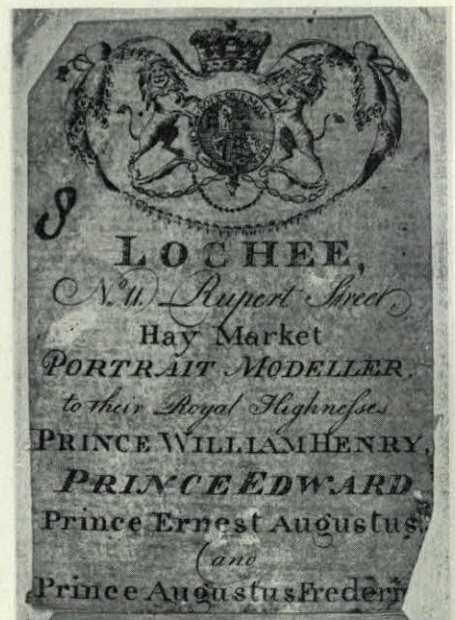 8
LOCHEE,
No. 11. Rupert Street,
Hay Market
PORTRAIT MODELLER,
to their Royal Highneſses
PRINCE WILLIAM HENRY,
PRINCE EDWARD
Prince Ernest Augustus,
and
Prince Augustus Frederi